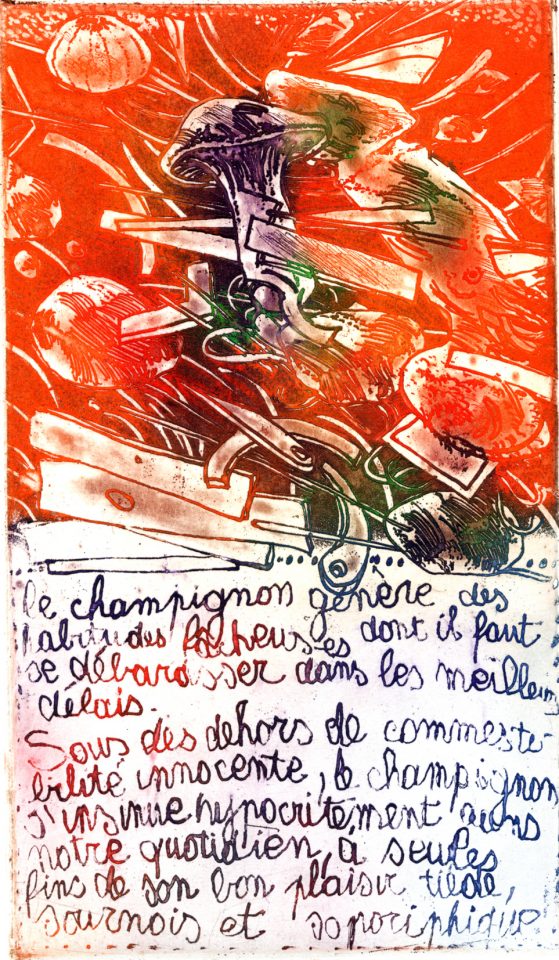 le champignon génère des
habitudes fâcheuses dont il faut
se débarasser dans les meilleurs
délais.
Sous des dehors de commeste-
bilité innocente, le champignon
s'insinue hypocritement dans
notre quotidien, à seules
fins de son bon plaisir tiède,
sournois et soporiphique